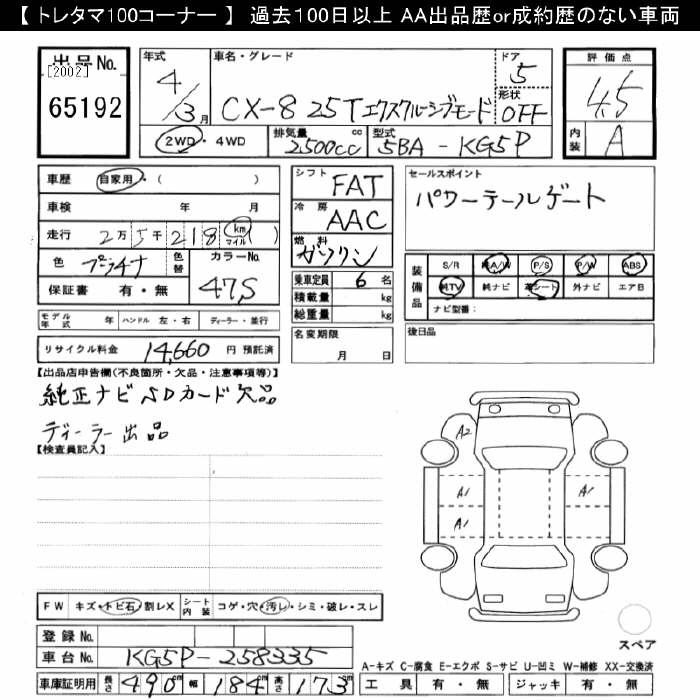 【 トレタマ100コーナー 】 過去100日以上 AA出品歴or成約歴のない車両
出品No.
[2002]
65192
年式
4/3月
車名・グレード
CX-8 25T エクスクルーシブモード
ドア
5
形状
OFF
評価点
4.5
内装
A
2WD・4WD
排気量
2500cc
cc
型式
5BA - KG5P
車歴 自家用・( )
車検 年 月
走行 2万5千218 km マイル ( )
色 プラチナ
色替
カラーNo.
47S
保証書 有・無
モデル年式 年 ハンドル 左・右 ディーラー・並行
リサイクル料金 14,660 円 預託済
シフト FAT
冷房 AAC
燃料 ガソリン
乗車定員 6 名
積載量 kg
総重量 kg
名変期限
月 日
セールスポイント
パワーテールゲート
装備品
S/R 純A/W P/S P/W ABS
純TV 純ナビ 革シート 外ナビ エアB
ナビ型番:
後日品
【出品店申告欄(不良箇所・欠品・注意事項等)】
純正ナビSDカード欠品
ディーラー出品
【検査員記入】
A2
A1
A1
A1
FW キズ・トビ石・割レX シート内装 コゲ・穴・汚レ・シミ・破レ・スレ
登録No.
車台No. KG5P-258335
車庫証明用 長さ 490cm 幅 184cm 高さ 173cm
スペア
A-キズ C-腐食 E-エクボ S-サビ U-凹ミ W-補修 XX-交換済
工具 有・無 ジャッキ 有・無